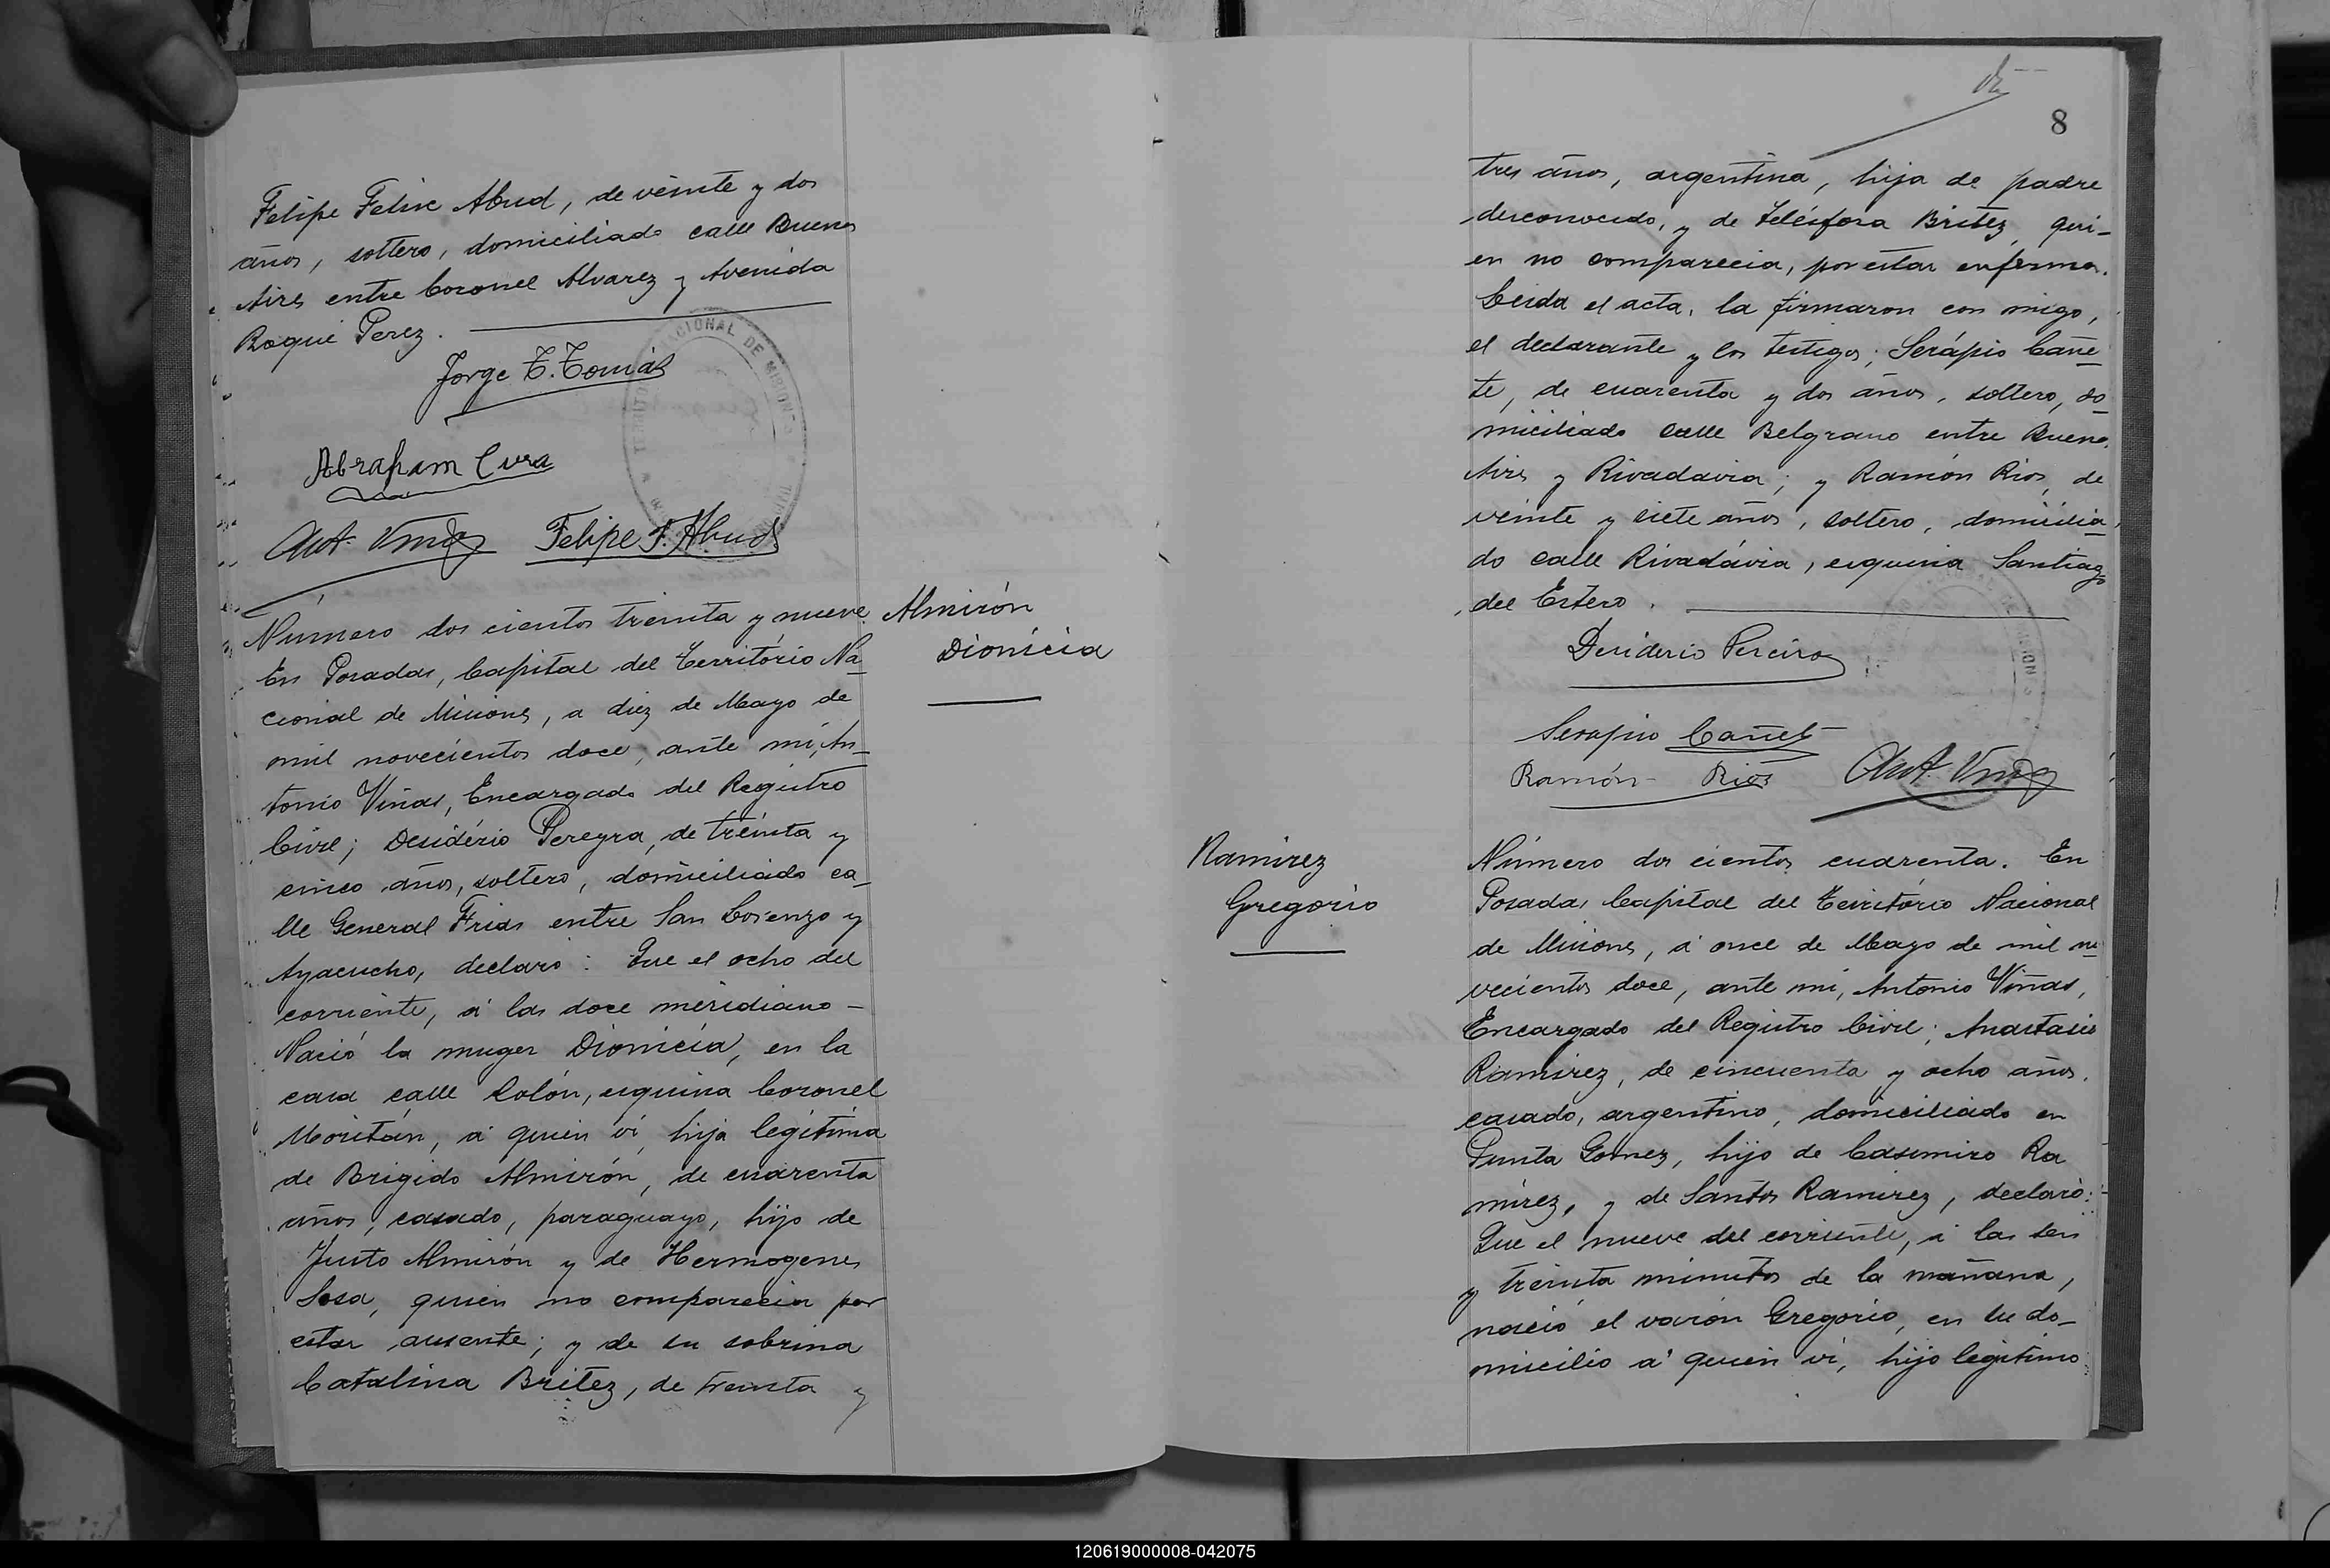 Felipe Felix Abud, de veinte y dos
años, soltero, domiciliado calle Buenos
Aires entre Coronel Alvarez y Avenida
Roque Perez.
Jorge T. Tomás
Abraham Cura
Felipe F. Abud
Número dos cientos treinta y nueve
En Posadas, Capital del Território Na_
cional de Misiones, a diez de Mayo de
mil novecientos doce, ante mi, An_
tonio Viñas, Encargado del Registro
Civil; Desidério Pereyra, de treinta y
cinco años, soltero, domiciliado ca_
lle General Frias entre San Lorenzo y
Ayacucho, declaró: Que el ocho del
corriente, á las doce meridiano –
Nació la muger Dionicia, en la
casa calle Colón, esquina Coronel
Moritán, á quien vi, hija legítima
de Brigido Almirón, de cuarenta
años, casado, paraguayo, hijo de
Justo Almirón y de Hermogenes
Sosa, quien no comparecia por
estar ausente; y de su sobrina
Catalina Britez, de treinta y
Almirón
Dionicia
8
tres años, argentina, hija de padre
desconocido, y de Telésfora Britez, qui_
en no comparecia, por estar enferma.
Leida el acta, la firmaron con migo,
el declarante y los testigos; Serápio Cañe_
te, de cuarenta y dos años, soltero, do_
miciliado calle Belgrano entre Buenos
Aires y Rivadavia; y Ramón Rios, de
veinte y siete años, soltero, domicilia_
do calle Rivadávia, esquina Santiago
del Estero.
Desiderio Pereira
Serapio Cañet
Ramón Rios
Ramirez
Gregorio
Número dos cientos cuarenta. En
Posadas Capital del Território Nacional
de Misiones, á once de Mayo de mil no_
vecientos doce, ante mi, Antonio Viñas,
Encargado del Registro Civil; Anastasio
Ramirez, de cincuenta y ocho años,
casado, argentino, domiciliado en
Punta Gomez, hijo de Casimiro Ra
mirez, y de Santos Ramirez, declaró:
Que el nueve del corriente, á las seis
y treinta minutos de la mañana,
nació el varón Gregorio, en su do_
micilio á quien vi, hijo legítimo
120619000008-042075